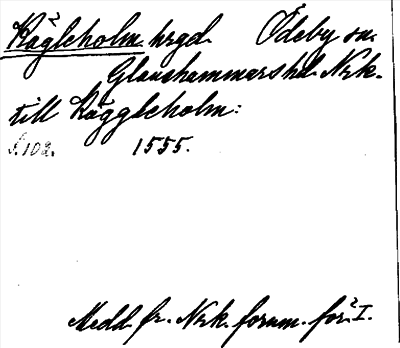 Kägleholm hrgd. Ödeby sn.
Glanshammars hd. Nrk.
till Käggleholm:
s. 102. 1555.
Medd. fr. Nrk. fornm. för. I.